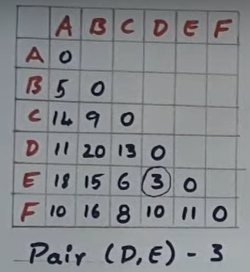 A B C D E F
A 0
B 5 0
C 14 9 0
D 11 20 13 0
E 18 15 6 3 0
F 10 16 8 10 11 0
Pair (D, E) - 3